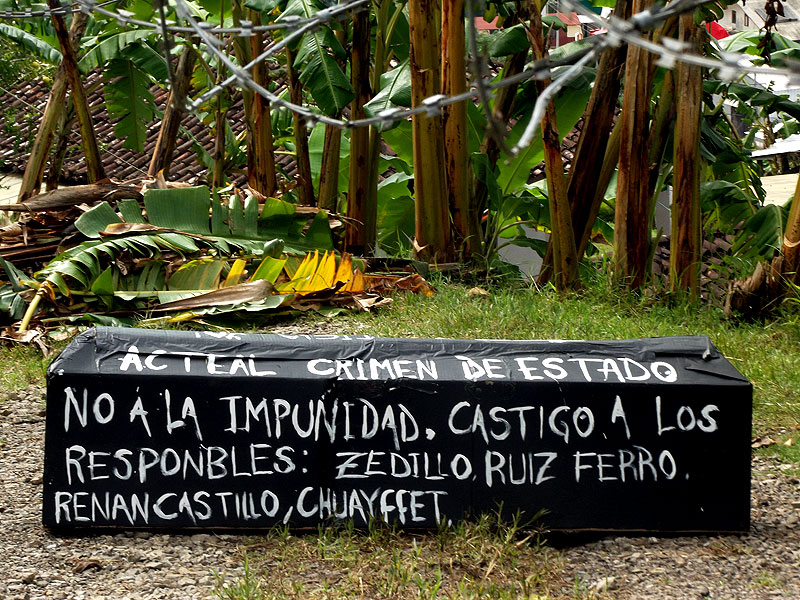 ACTEAL CRIMEN DE ESTADO
NO A LA IMPUNIDAD. CASTIGO A LOS
RESPONBLES: ZEDILLO, RUIZ FERRO.
RENAN CASTILLO, CHUAYFFET.